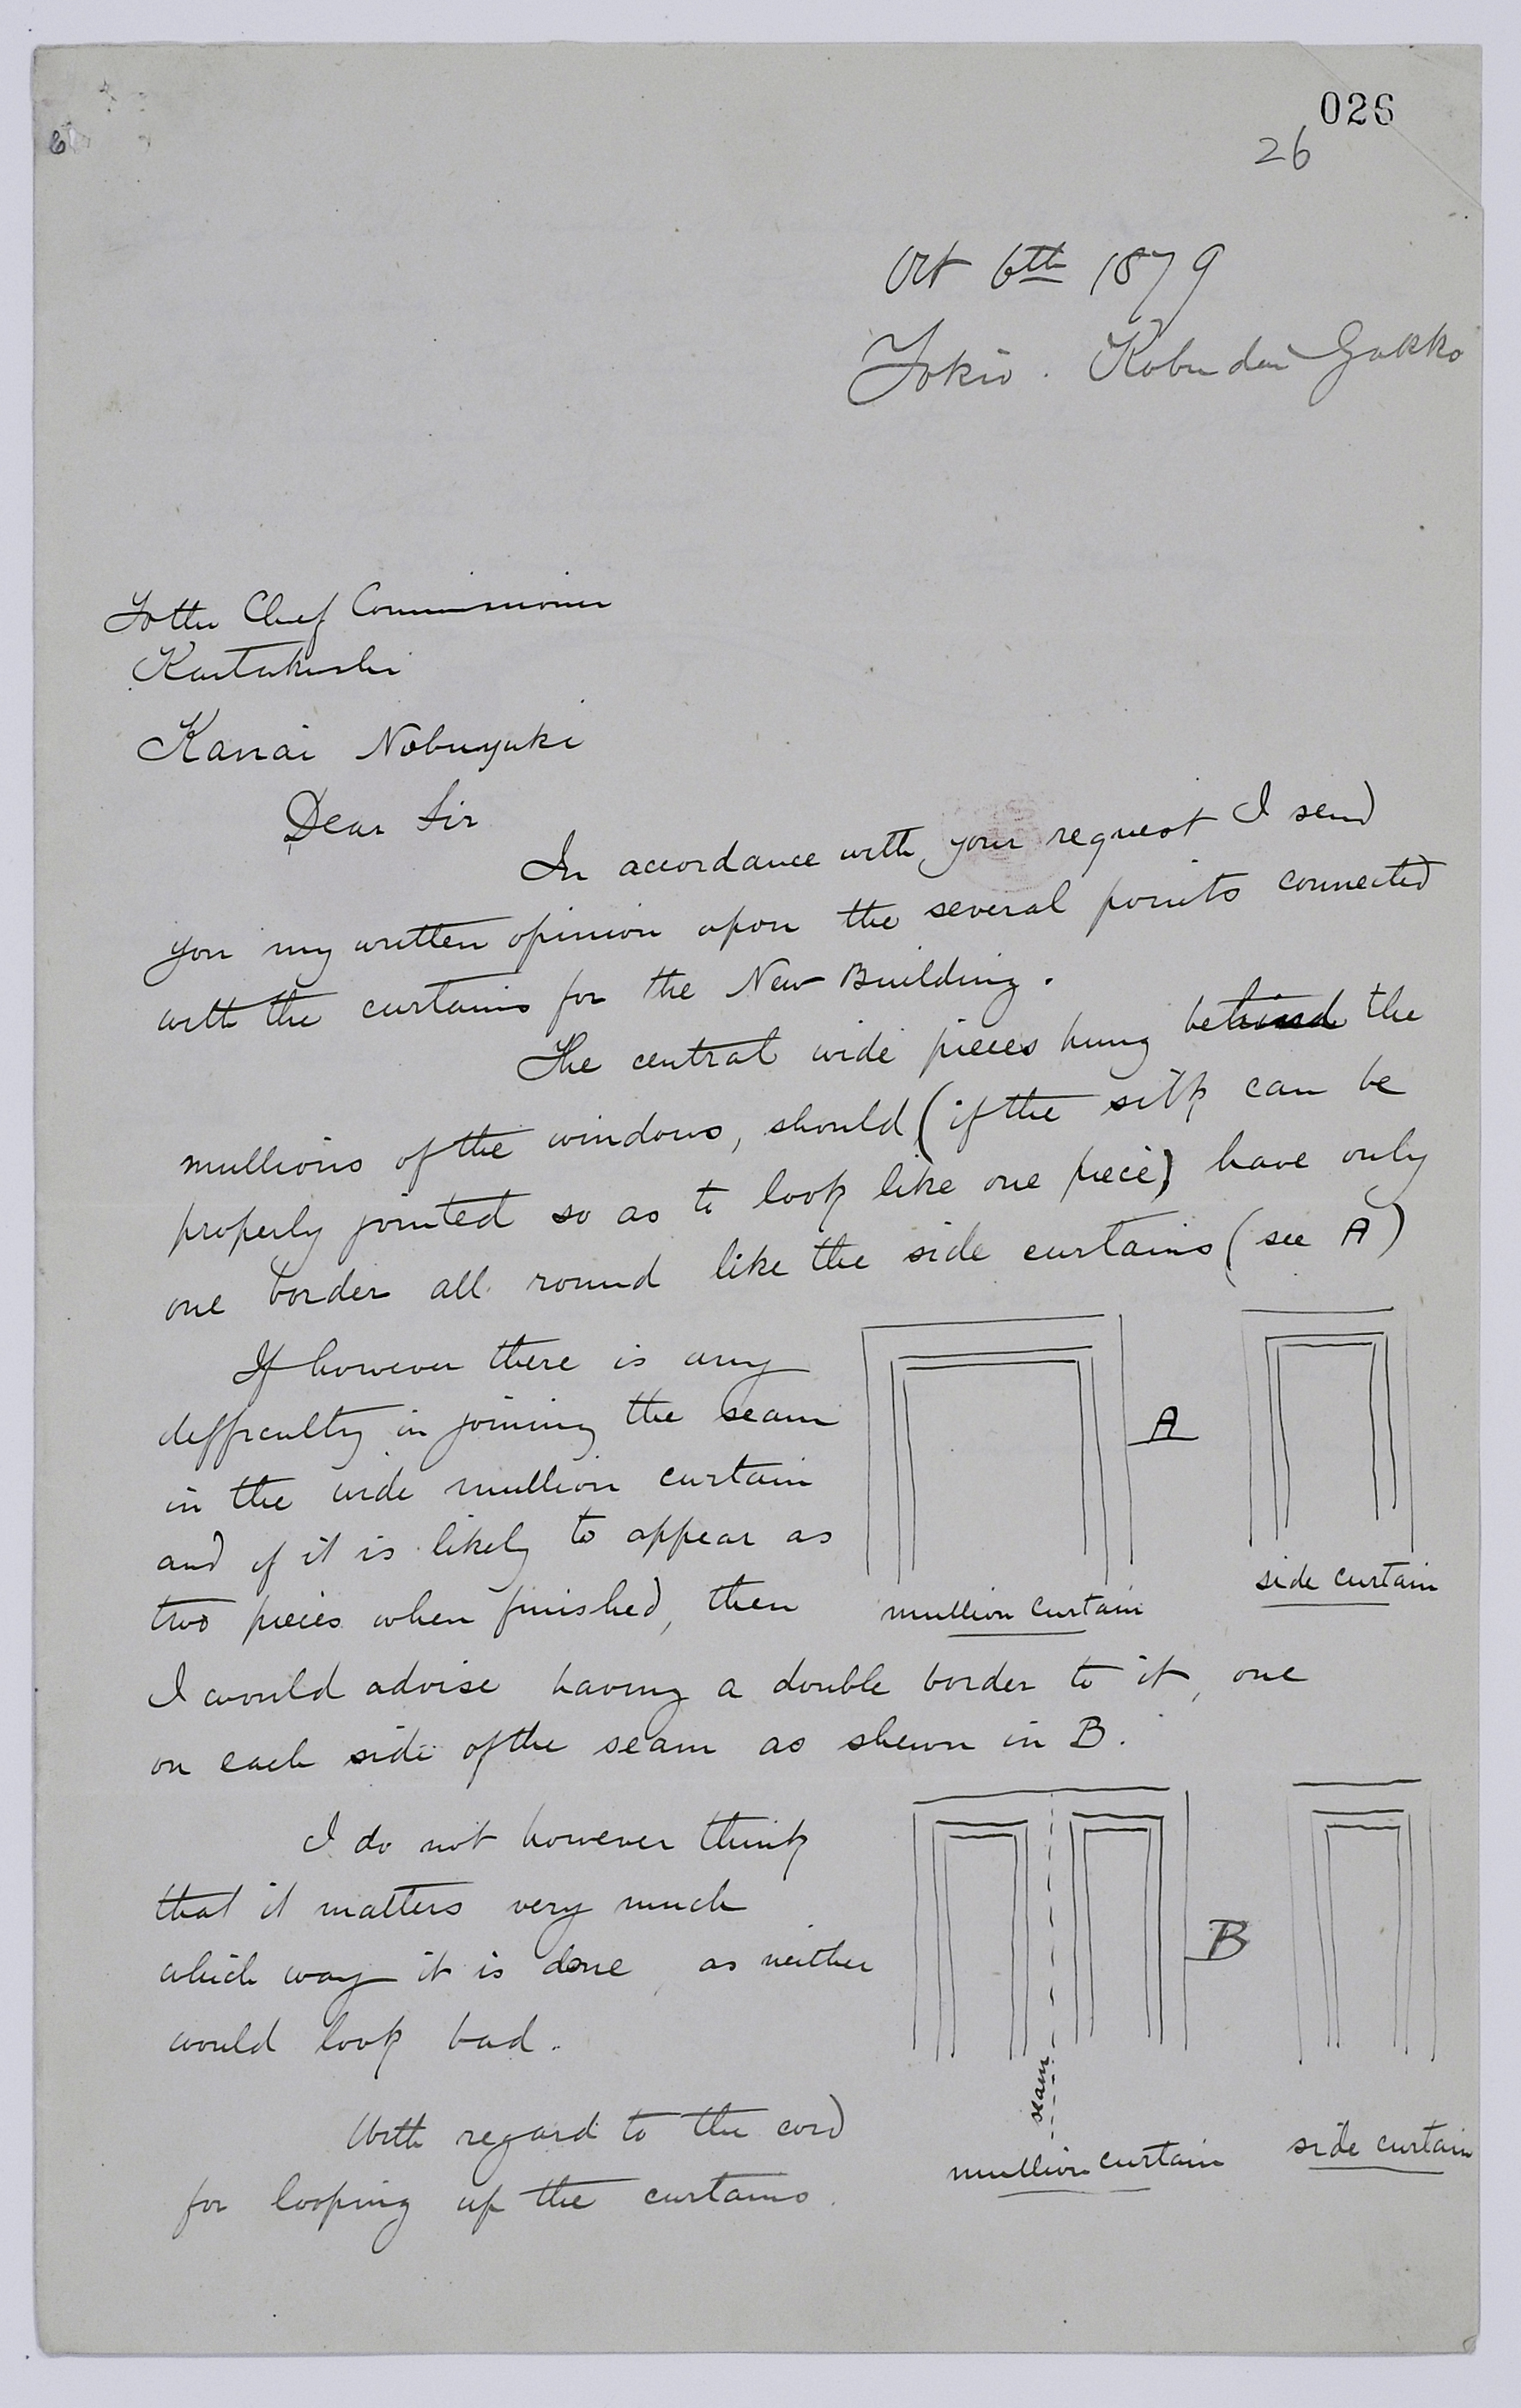 026
26
Oct 6th 1879
Tokio. Kobu dai Gakko
To the Chief Commissioner
Kaitakushi
Kanai Nobuyuki
Dear Sir
In accordance with your request I send
you my written opinion upon the several points connected
with the curtains for the New Building.
The central wide pieces hung behind the
mullions of the windows, should (if the silk can be
properly jointed so as to look like one piece) have only
one border all round like the side curtains (see A)
If however there is any
difficulty in joining the seam
in the wide mullion curtain
and if it is likely to appear as
two pieces when finished, then
I would advise having a double border to it, one
on each side of the seam as shewn in B.
A
mullion curtain
side curtain
I do not however think
that it matters very much
which way it is done, as neither
would look bad.
With regard to the cord
for looping up the curtains.
B
seam
mullion curtain
side curtain